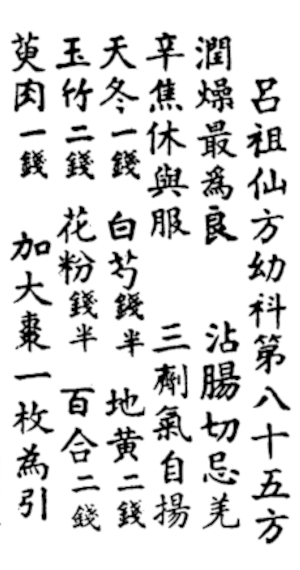 呂祖仙方幼科第八十五方
潤燥最為良 沾腸切忌羌
辛焦休與服 三劑氣自揚
天冬一錢 白芍錢半 地黃二錢
玉竹二錢 花粉錢半 百合二錢
萸肉一錢 加大棗一枚為引